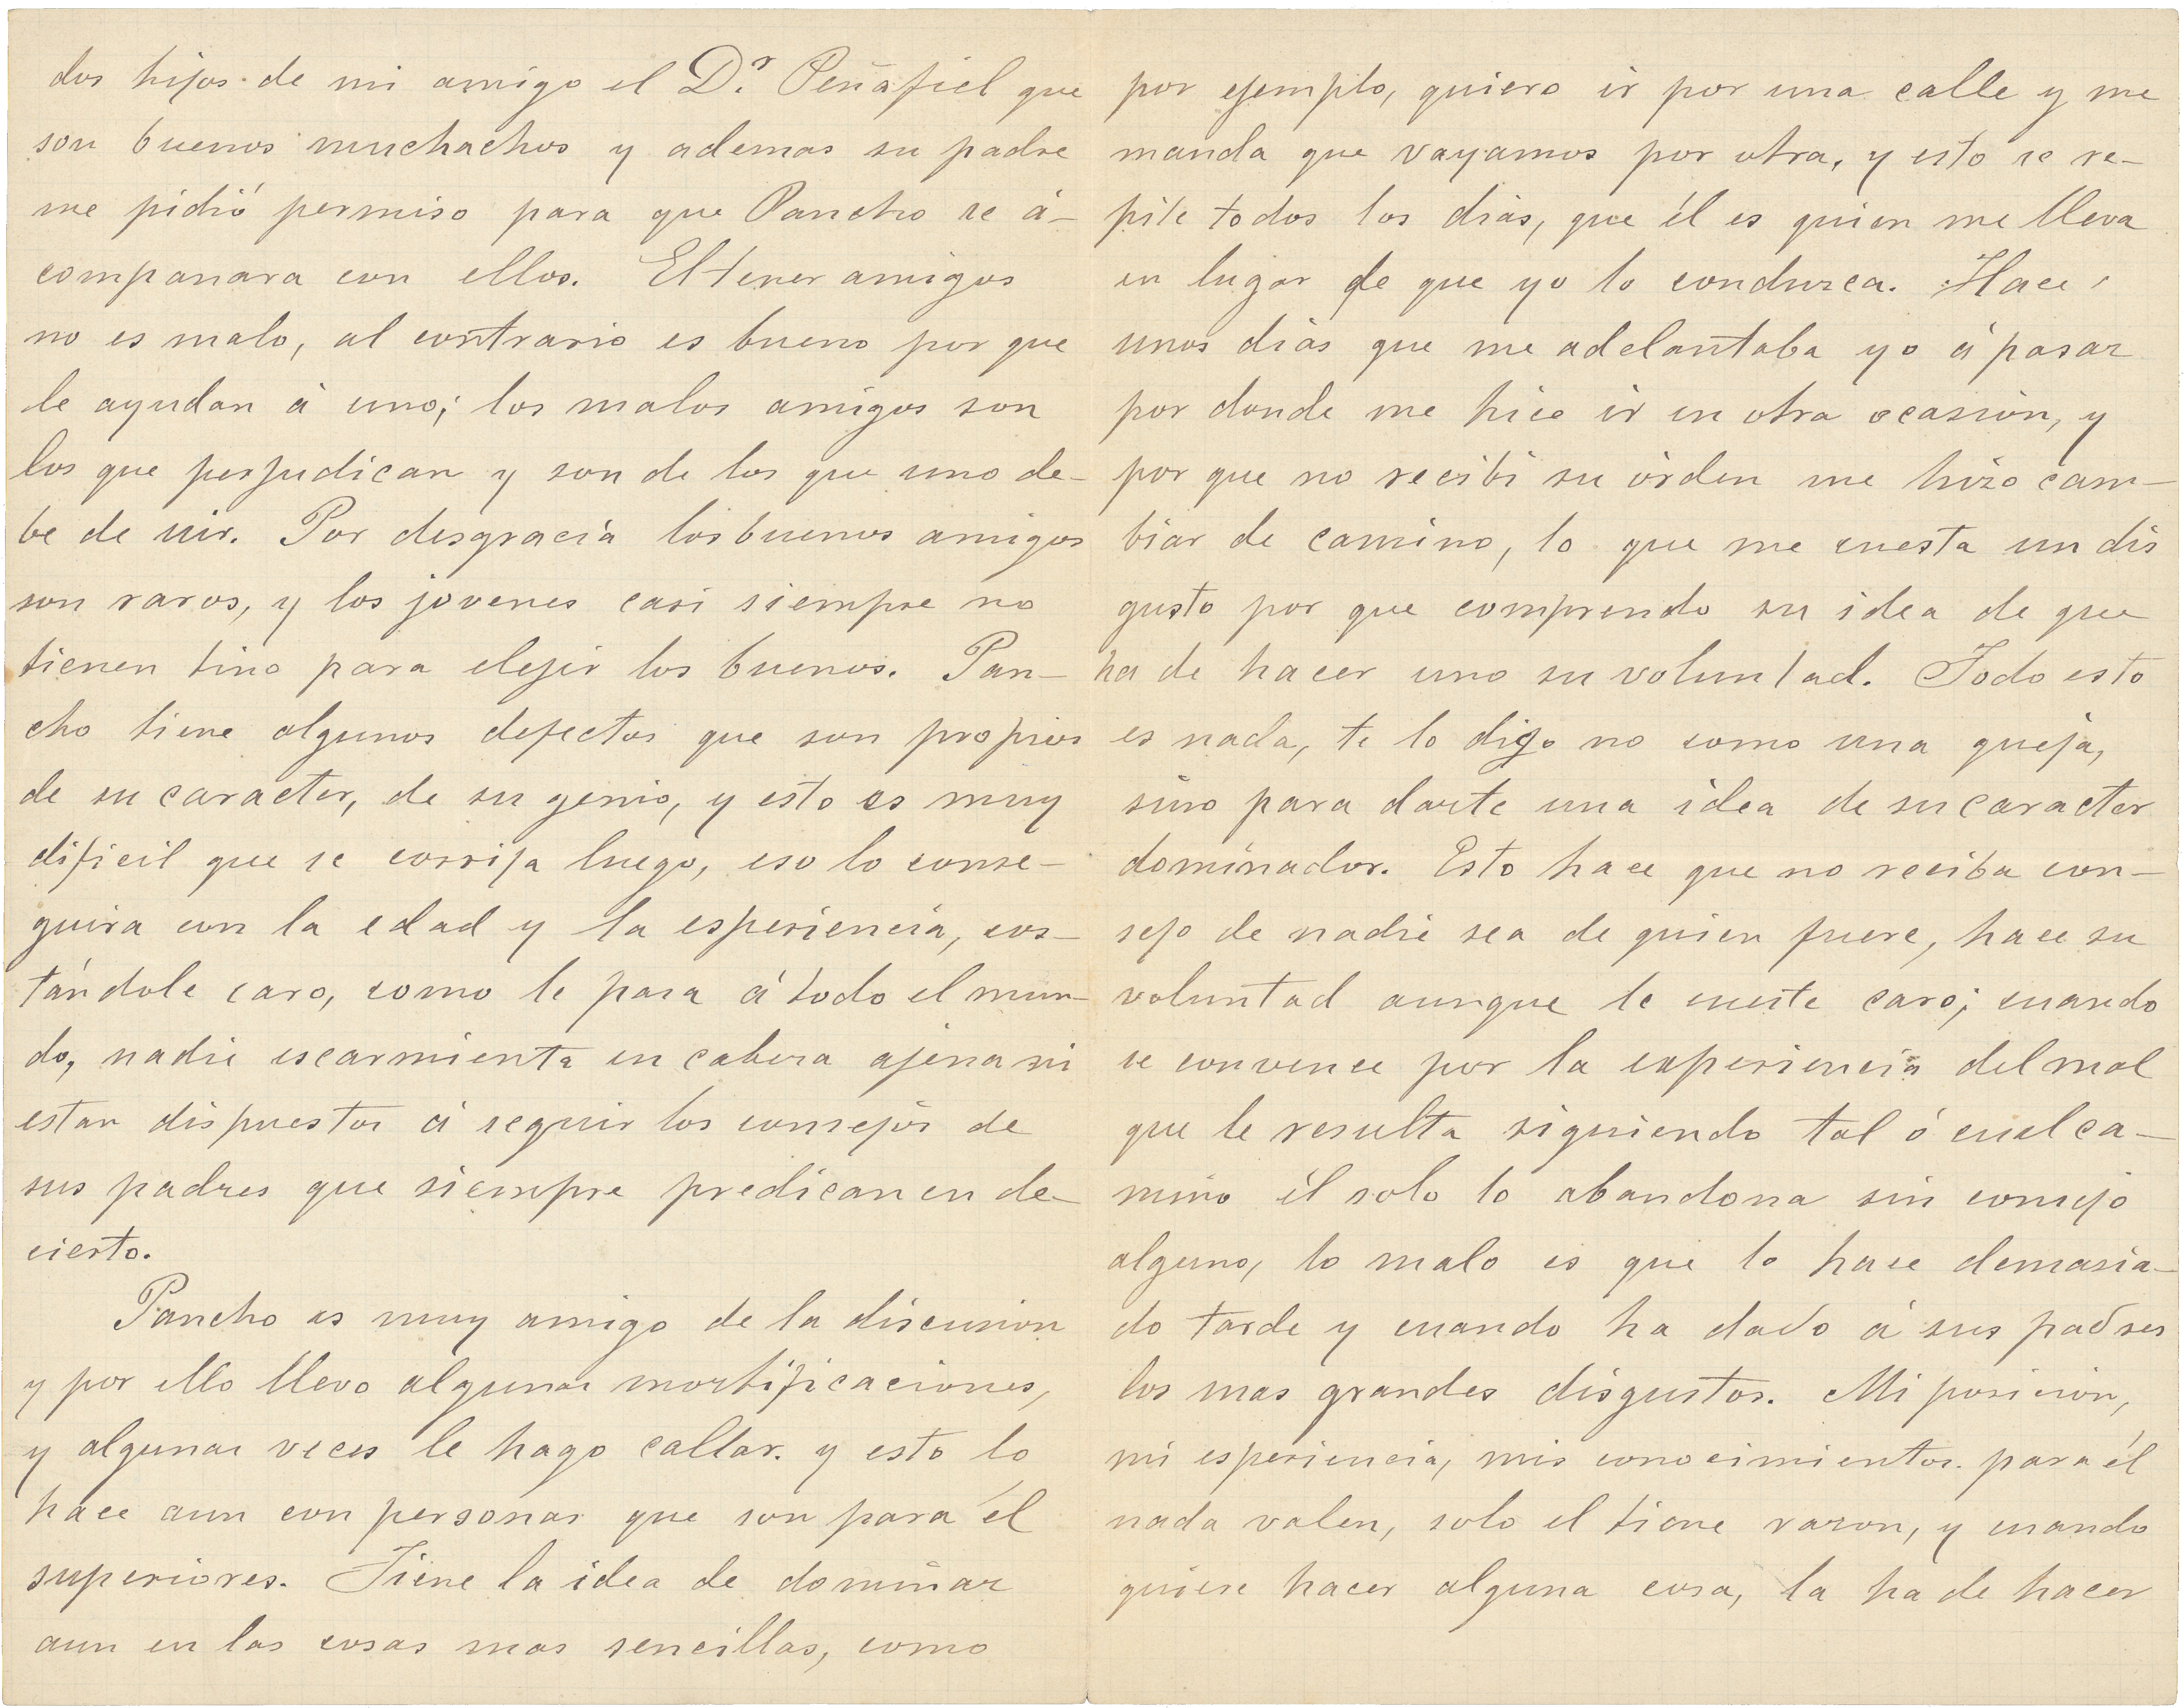 dos hijos de mi amigo el D.r Peñafiel que
son buenos muchachos y ademas su padre
me pidió permiso para que Pancho se á-
compañara con ellos. El tener amigos
no es malo, al contrario es bueno por que
le ayudan á uno; los malos amigos son
los que perjudican y son de los que uno de-
be de uir. Por desgracia los buenos amigos
son raros, y los jovenes casi siempre no
tienen tino para elejir los buenos. Pan-
cho tiene algunos defectos que son propios
de su caracter, de su genio, y esto es muy
dificil que se corrija luego, eso lo conse-
guira con la edad y la esperiencia, cos-
tándole caro, como le pasa á todo el mun-
do, nadie escarmienta en cabeza ajena ni
estan dispuestos á seguir los consejos de
sus padres que siempre predican en de-
cierto.
Pancho es muy amigo de la discusion
y por ello llevo algunas mortificaciones,
y algunas veces le hago callar. y esto lo
hace aun con personas que son para él
superiores. Tiene la idea de dominar
aun en las cosas mas sencillas, como
por ejemplo, quiero ir por una calle y me
manda que vayamos por otra, y esto se re-
pite todos los dias, que él es quien me lleva
en lugar de que yo lo condusca. Hace
unos dias que me adelantaba yo á pasar
por donde me hice ir en otra ocasion, y
por que no recibi su órden me hizo cam-
biar de camino, lo que me cuesta un dis
gusto por que comprendo su idea de que
ha de hacer uno su voluntad. Todo esto
es nada, te lo digo no como una queja,
sino para darte una idea de su caracter
dominador. Esto hace que no reciba con-
sejo de nadie sea de quien fuere, hace su
voluntad aunque le cueste caro; cuando
se convence por la experiencia del mal
que le resulta siguiendo tal ó cual ca-
mino él solo lo abandona sin consejo
alguno, lo malo es que lo hace demasia-
do tarde y cuando ha dado á sus padres
los mas grandes disgustos. Mi posicion,
mi esperiencia, mis conocimientos para él
nada valen, solo el tiene razon, y cuando
quiere hacer alguna cosa, la ha de hacer